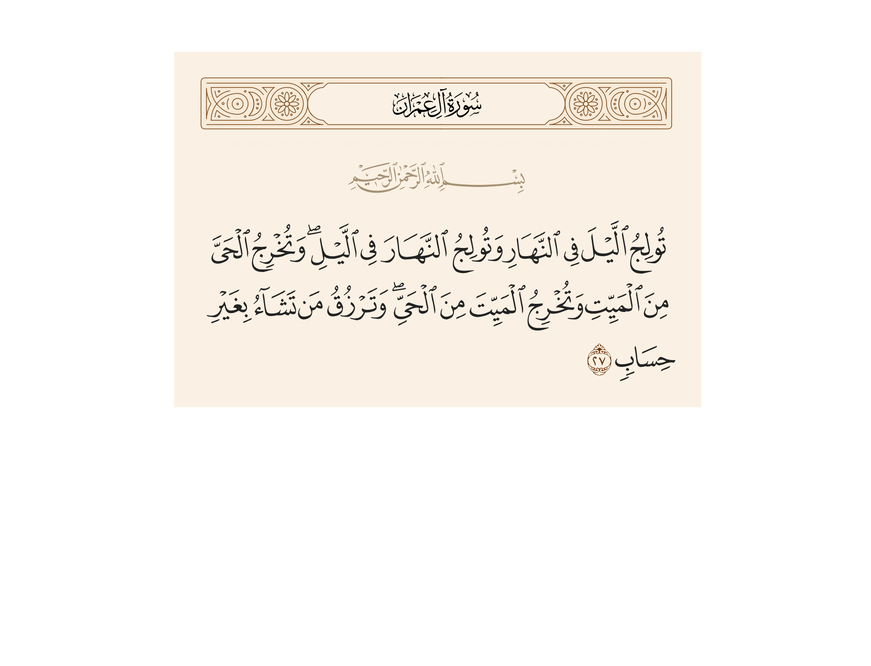 سُورَةُ آلِ عِمْرَان
بِسْمِ ٱللَّهِ ٱلرَّحْمَٰنِ ٱلرَّحِيمِ
تُولِجُ ٱلَّيْلَ فِى ٱلنَّهَارِ وَتُولِجُ ٱلنَّهَارَ فِى ٱلَّيْلِ ۖ وَتُخْرِجُ ٱلْحَىَّ
مِنَ ٱلْمَيِّتِ وَتُخْرِجُ ٱلْمَيِّتَ مِنَ ٱلْحَىِّ ۖ وَتَرْزُقُ مَن تَشَآءُ بِغَيْرِ
حِسَابٍ ٢٧